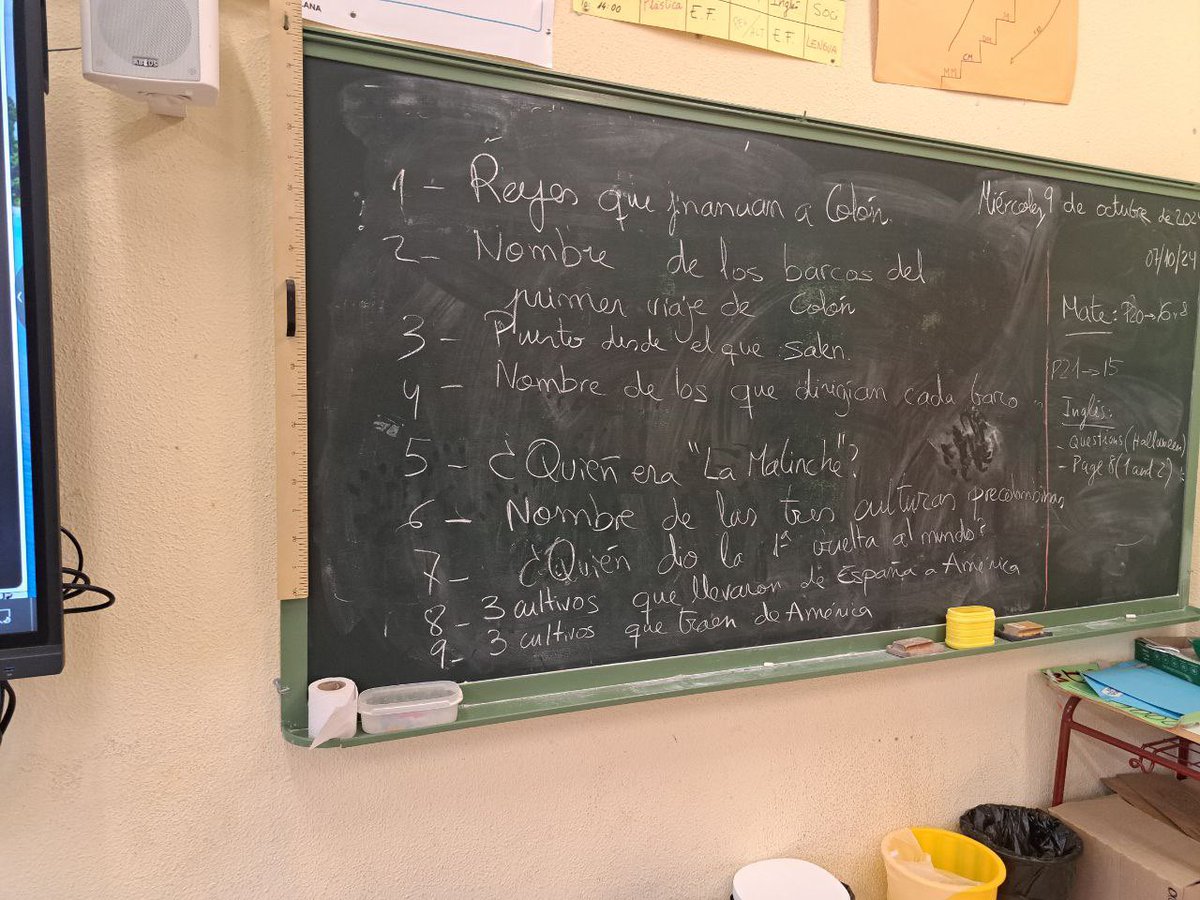 LANA
14:00
Plástica
E.F.
Inglé
SOCI
E.F.
LENGUA
MM
CM
DM
M
1 - Reyes que finanuan a Colón.
2 - Nombre de los barcos del
primer viaje de Colón
3 - Puerto desde el que salen.
4 - Nombre de los que dirigían cada barco
5 - ¿Quién era "La Malinche"?
6 - Nombre de las tres culturas precolombinas
7 - ¿Quién dio la 1ª vuelta al mundo?
8 - 3 cultivos que llevaron de España a América
9 - 3 cultivos que traen de América
Miércoles, 9 de octubre de 202
07/10/24
Mate: P20→16 y 8
P21→15
Inglés:
- Questions (Halloween)
- Page 8 (1 and 2)